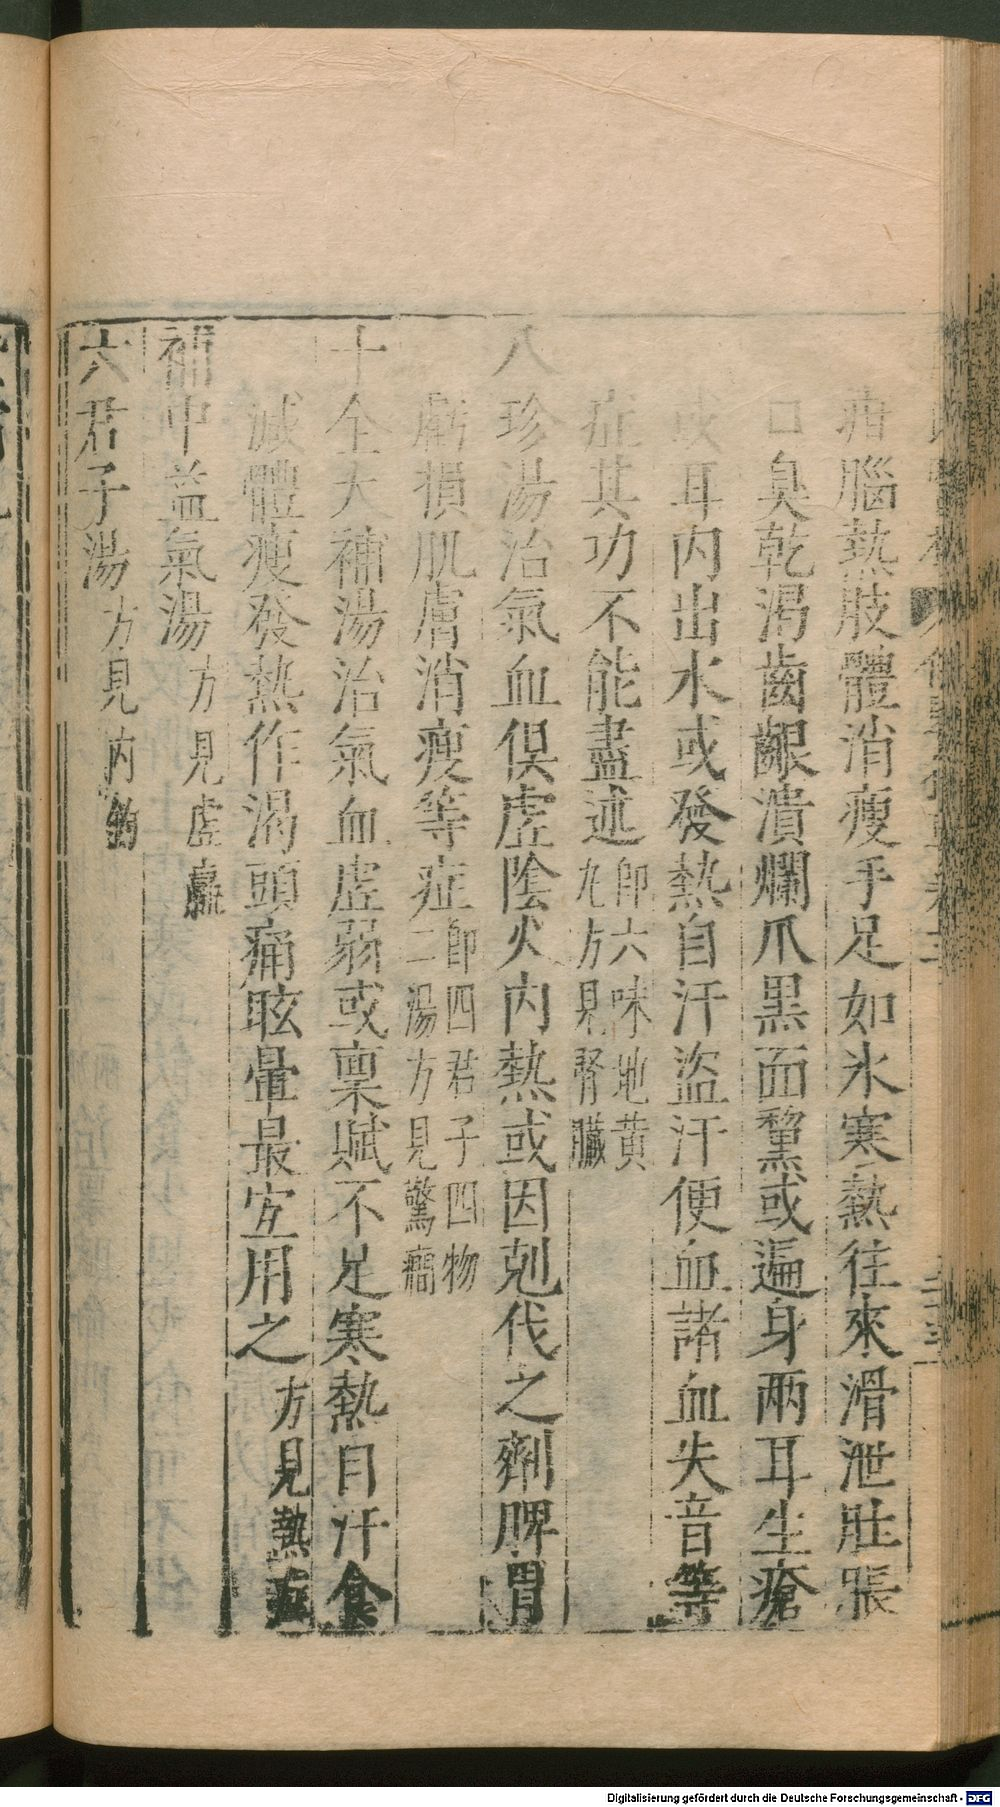 疳腦熱肢體消瘦手足如氷寒熱往來滑泄肚脹
口臭乾渴齒齦潰爛爪黒面黧或遍身兩耳生瘡
或耳内出水或發熱自汗盜汗便血諸血失音等
症其功不能盡述即六味地黄
丸方見腎臟
八珍湯治氣血俱虚陰火内熱或因剋伐之劑脾胃
虧損肌膚消瘦等症即四君子四物
二湯方見驚癇
十全大補湯治氣血虚弱或稟賦不足寒熱自汗食
減體瘦發熱作渴頭痛眩暈最宜用之方見熱
補中益氣湯方見虚羸
六君子湯方見内釣
Digitalisierung gefördert durch die Deutsche Forschungsgemeinschaft - DFG